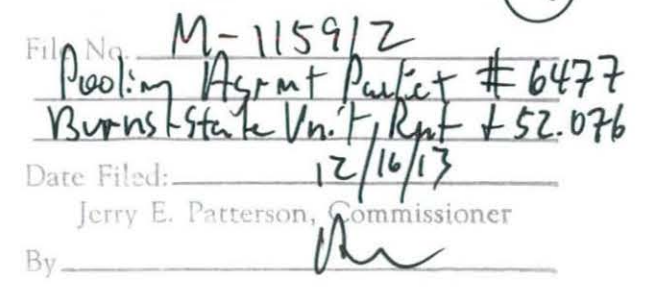 File No. M-115912
Pooling Agrmt # 6477
Burns-State Unit, + 52.076
Date Filed: 12/16/13
Jerry E. Patterson, Commissioner
By